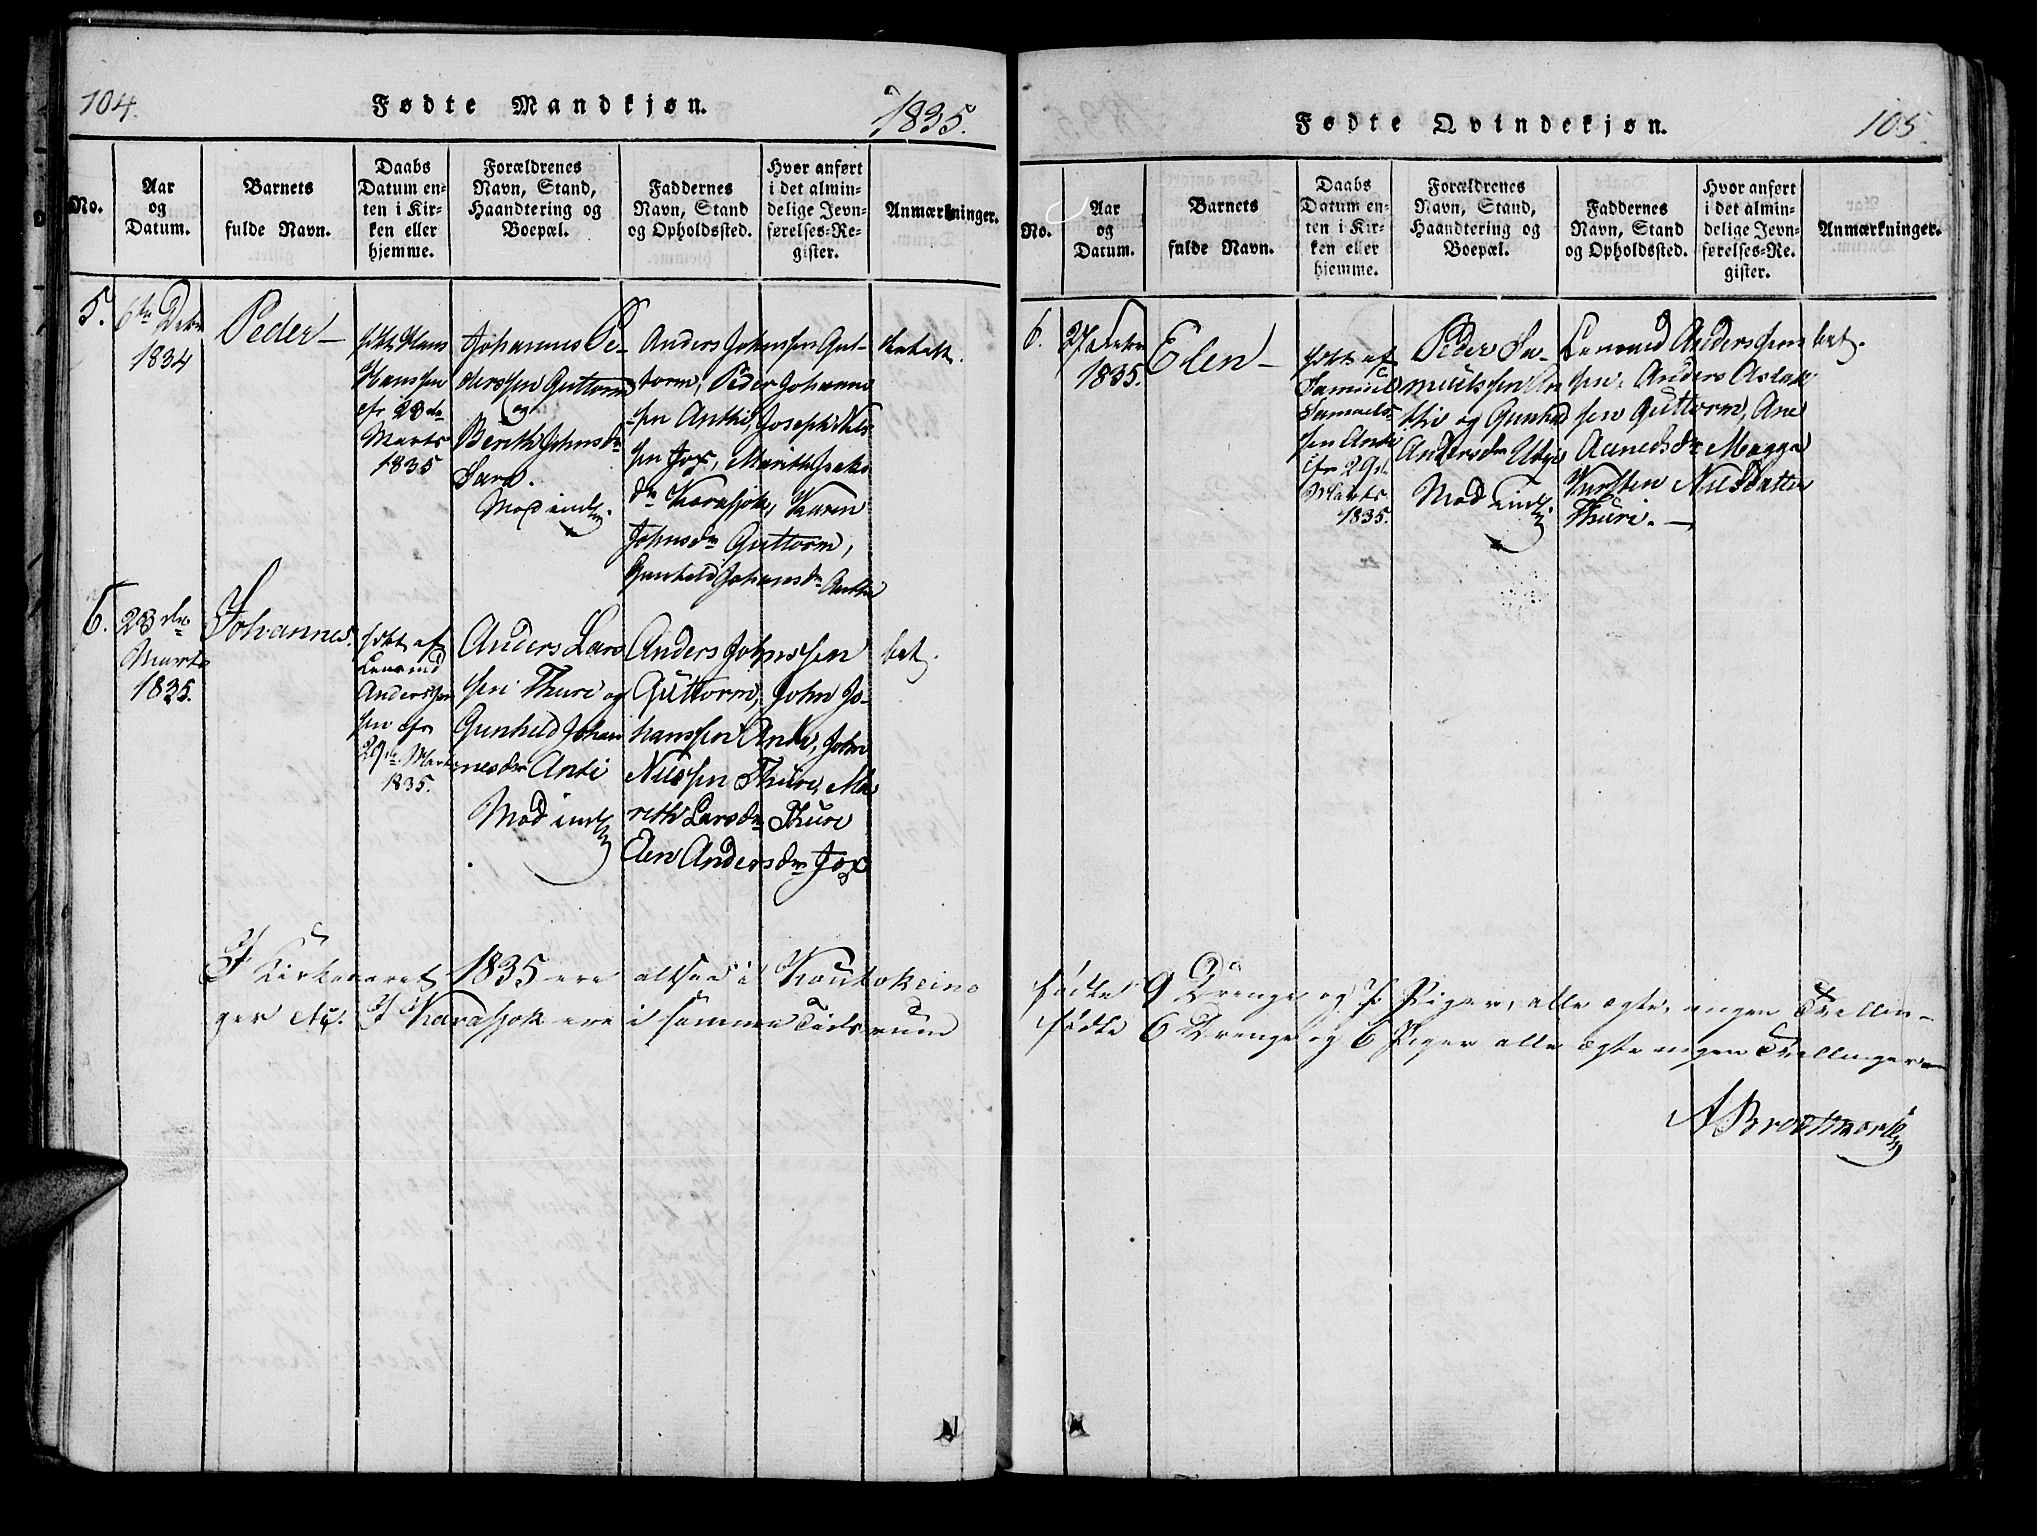 104.
Fødte Mandkjøn.
1835.
No.
Aar
og
Datum.
Barnets
fulde Navn.
Daabs
Datum en-
ten i Kir-
ken eller
hjemme.
Forældrenes
Navn, Stand,
Haandtering og
Boepæl.
Faddernes
Navn, Stand
og Opholdssted.
Hvor anført
i det almin-
delige Jevn-
førelses-Re-
gister.
Anmærkninger.
5.
6te
1834
Peder
Hans
Hanssen
23de
Marts
1835
Johannes Pe-
derssen Guttorm
og
Berith Johnsdr
Sara.
Anders Johnssen Gut-
torm, Peder Johanne
sen Anthi, Joseph Nils
sen Jox, Marith
dr Karasjok, Karen
Johnsdr Guttorm,
Gunheld Johansdr Anthi
6.
23de
Marts
1835.
Johannes.
døbt af
Anderssen
29de Marts
1835.
Anders Lars
sen Thuri og
Gunheld Johan
nesdr Anti
Anders Johnssen
Guttorm, John Jo-
hanssen Anti, John
Nilssen Thuri, Ma
reth Larsdr Thuri
Elen Andersdr Jox
bet.
I Kirkeaaret 1835 ere altsaa i Koutokeino
ger I Karasjok ere i samme Tidsrum
105.
Fødte Qvindekjøn.
No.
Aar
og
Datum.
Barnets
fulde Navn.
Daabs
Datum en-
ten i Kir-
ken eller
hjemme.
Forældrenes
Navn, Stand,
Haandtering og
Boepæl.
Faddernes
Navn, Stand
og Opholdssted.
Hvor anført
i det almin-
delige Jevn-
førelses-Re-
gister.
Anmærkninger.
6.
1835.
Elen
døbt af
Samuel
Samuels-
sen Anti
29de
Marts
1835.
Peder Sa-
muelssen
og Gunheld
Andersdr
Anderssen
sen, Anders Aslak
sen Guttorm, Ane
Magga
Nilsdatter
Thuri.
bet.
fødte 9 Drenge og 7 Piger, alle ægte, ingen Tvillin-
fødte 6 Drenge og 6 Piger alle ægte ingen Tvillinger